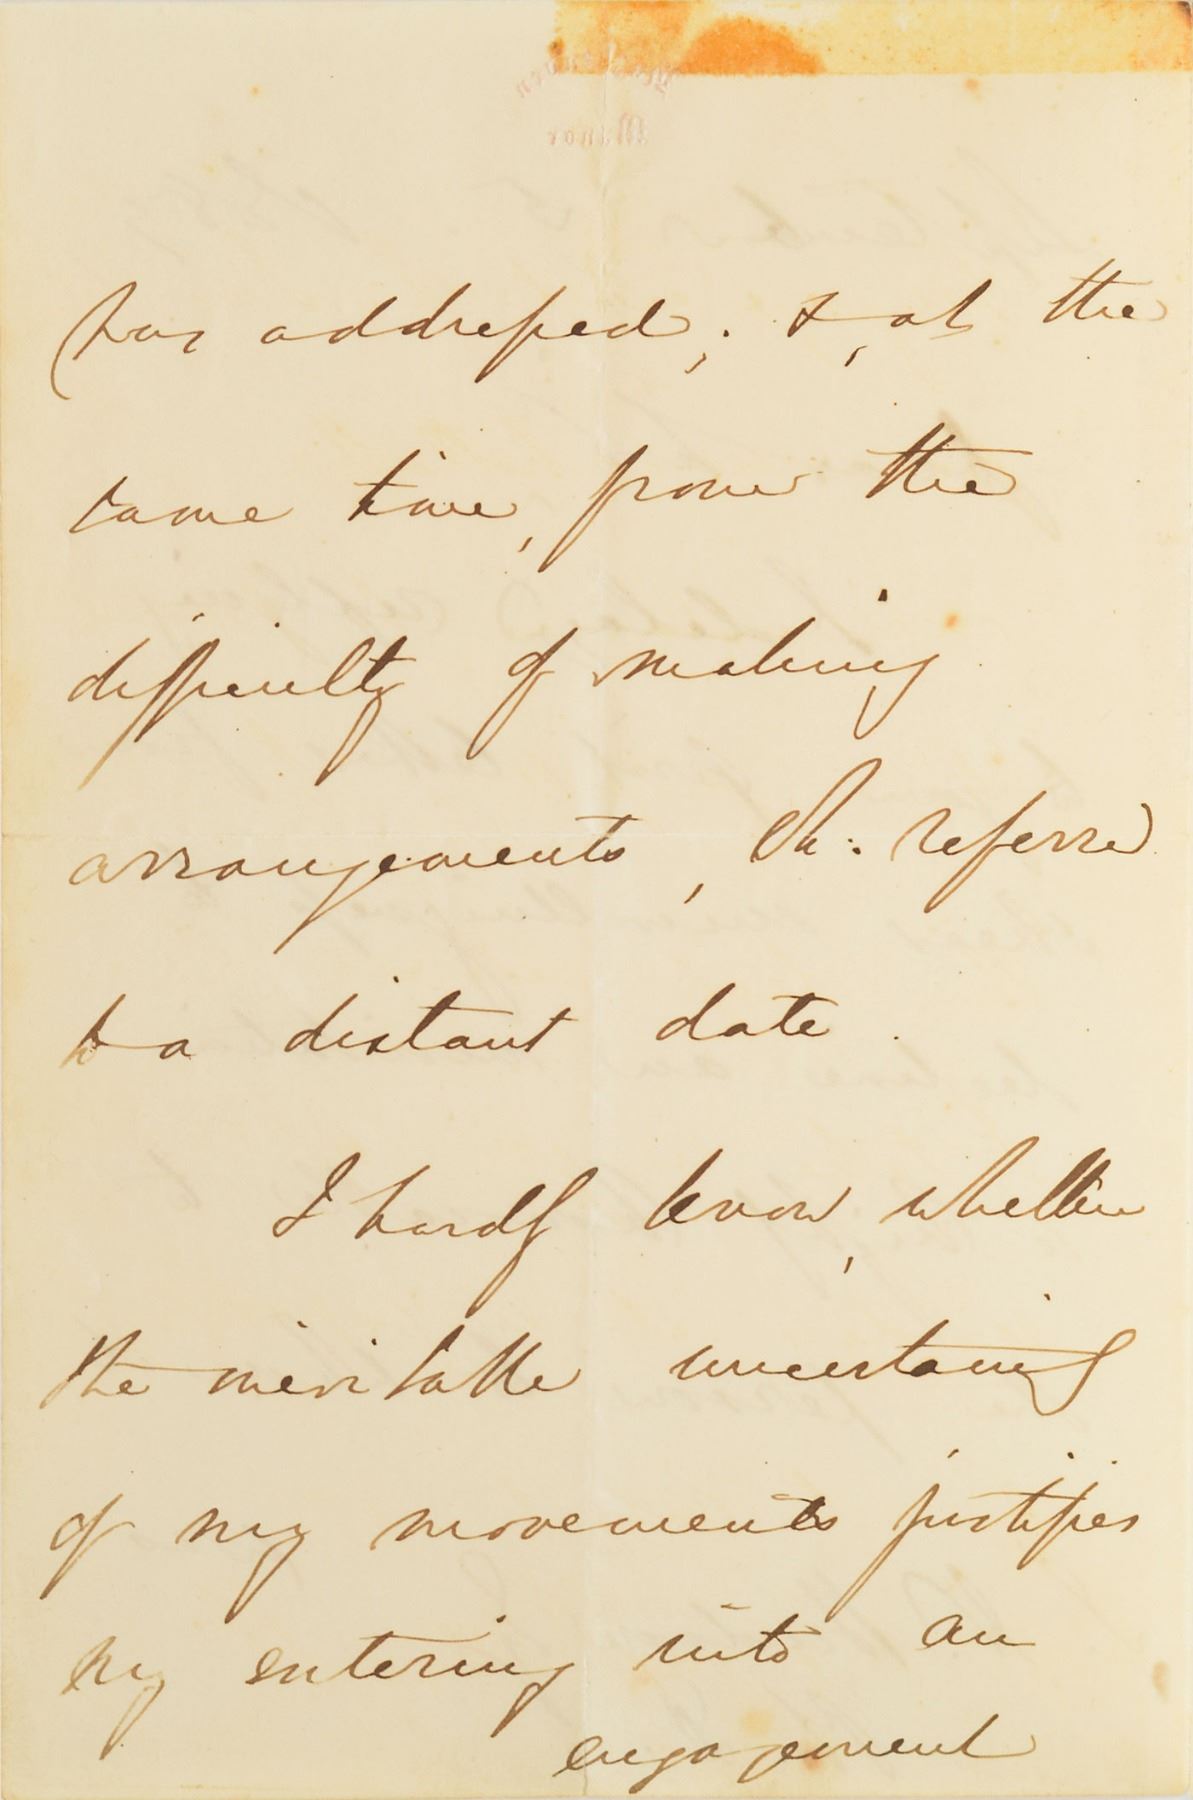 Manor
has addressed; & at the
same time, from the
difficulty of making
arrangements, shd: refer
to a distant date.
I hardly know, whether
the inevitable uncertainty
of my movements justifies
my entering into an
engagement